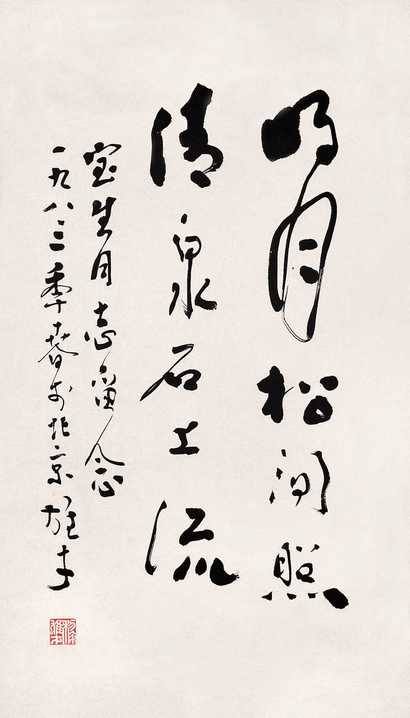 明月松间照
清泉石上流
宝生同志留念
一九八三季春于北京 雄才